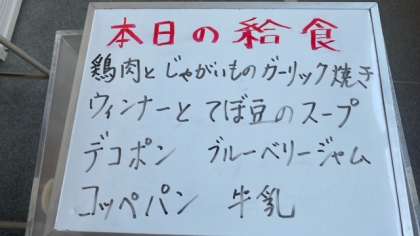 本日の給食
鶏肉とじゃがいものガーリック焼き
ウィンナーとてぼ豆のスープ
デコポン ブルーベリージャム
コッペパン 牛乳